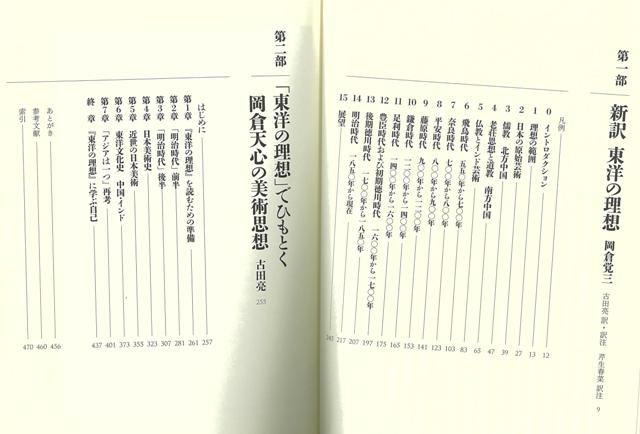 第一部 新訳 東洋の理想 岡倉覚三 古田亮 訳・訳注 芹生春菜 訳注 9
凡例
0 イントロダクション 12
1 理想の範囲 13
2 日本の原始芸術 27
3 儒教 北方中国 39
4 老荘思想と道教 南方中国 47
5 仏教とインド芸術 65
6 飛鳥時代 五五〇年から七〇〇年 83
7 奈良時代 七〇〇年から八〇〇年 103
8 平安時代 八〇〇年から九〇〇年 123
9 藤原時代 九〇〇年から一二〇〇年 141
10 鎌倉時代 一二〇〇年から一四〇〇年 153
11 足利時代 一四〇〇年から一六〇〇年 165
12 豊臣時代および初期徳川時代 一六〇〇年から一七〇〇年 175
13 後期徳川時代 一七〇〇年から一八五〇年 197
14 明治時代 一八五〇年から現在 207
15 展望 217
第二部 「東洋の理想」でひもとく
岡倉天心の美術思想 古田亮 255
はじめに 257
第1章 『東洋の理想』を読むための準備 261
第2章 「明治時代」前半 281
第3章 「明治時代」後半 307
第4章 日本美術史 323
第5章 近世の日本美術 355
第6章 東洋文化史 中国・インド 373
第7章 「アジアは一つ」再考 401
終章 『東洋の理想』に学ぶ自己 437
あとがき 456
参考文献 460
索引 470